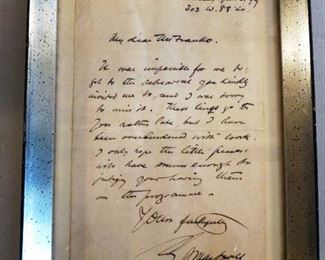 203 W. 88 St.
My dear Mr Franko.
It was impossible for me to
get to the rehearsal you kindly
invited me to, and I was sorry
to miss it. These things go to
you rather late but I have
been overburdened with work
I only hope the little pieces
will have music enough to
justify your having them
on the programme
Yours faithfully
MacDowell